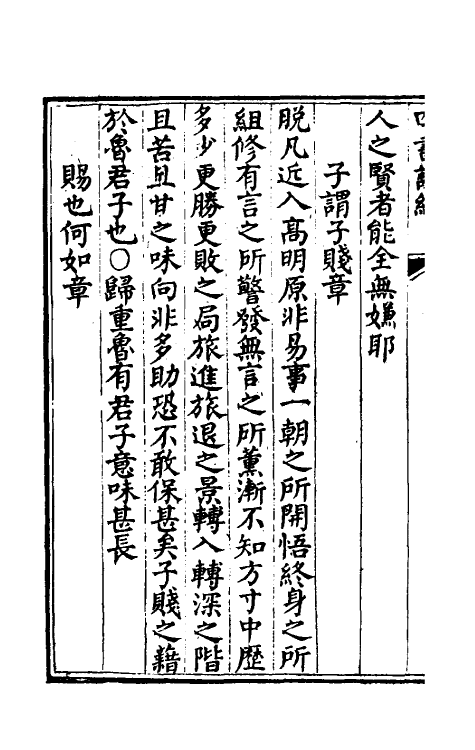 人之賢者能全無嫌耶
子謂子賤章
脱凡近入高明原非易事一朝之所開悟終身之所
組修有言之所警發無言之所薫漸不知方寸中歴
多少更勝更敗之局旅進旅退之景轉入轉深之階
且苦且甘之味向非多助恐不敢保甚矣子賤之藉
於魯君子也○歸重魯有君子意味甚長
賜也何如章